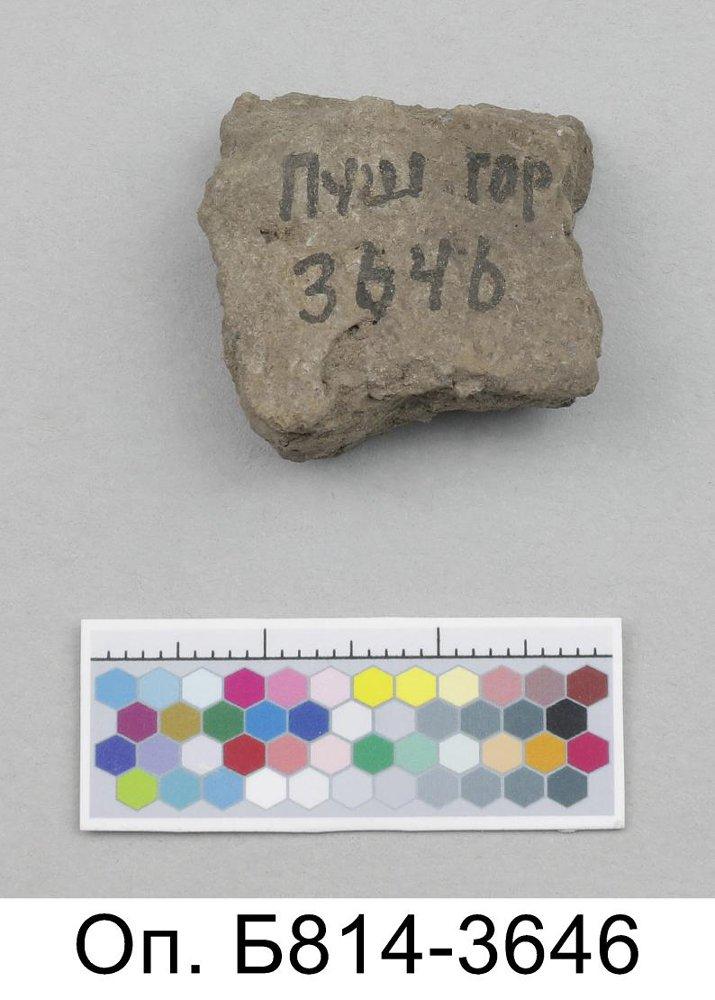 Пуш гор
3646
Оп. Б814-3646